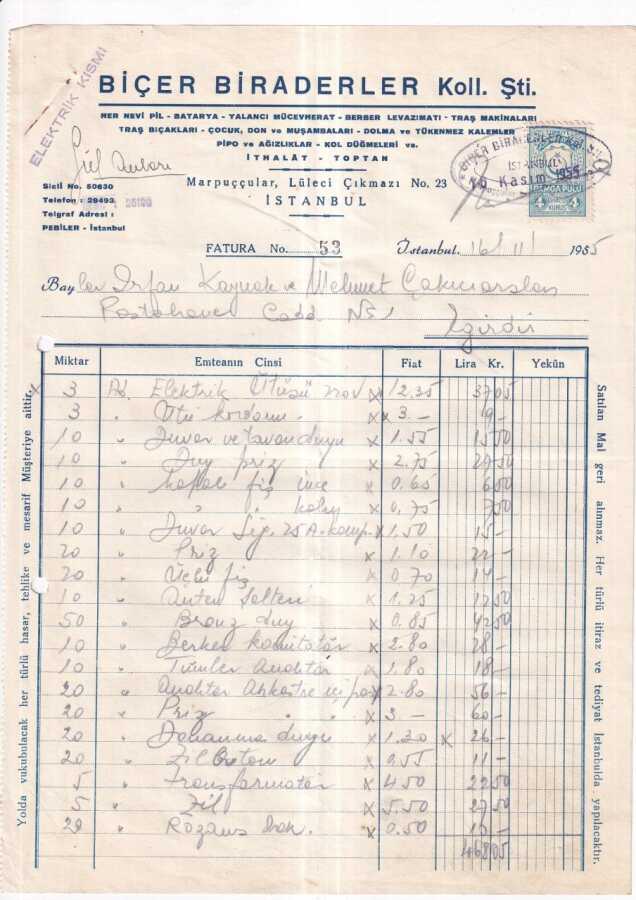 ELEKTRİK KISMI
BİÇER BİRADERLER Koll. Şti.
HER NEVİ PİL - BATARYA - YALANCI MÜCEVHERAT - BERBER LEVAZIMATI - TRAŞ MAKİNALARI
TRAŞ BIÇAKLARI - ÇOCUK, DON ve MUŞAMBALARI - DOLMA ve TÜKENMEZ KALEMLER
PİPO ve AĞIZLIKLAR - KOL DÜĞMELERİ vs.
İTHALÂT - TOPTAN
BİÇER BİRADERLER
İSTANBUL
16 Kasım 1955
DAMGA PULU
4 4
Sicil No. 50630
Telefon : 29493
Telgraf Adresi :
PEBİLER - İstanbul
Marpuççular, Lüleci Çıkmazı No. 23
İSTANBUL
FATURA No. 53
İstanbul. 16/11/1955
Baylar İrfan Kaynak ve Mehmet Çakıcıarslan
Postahane Cadd. No 1
Eğirdir
Miktar Emteanın Cinsi Fiat Lira Kr. Yekûn
3 Ad. Elektrik Ütüsü x 12.35 37 05
3 " Ütü kordonu x 3.- 9 -
10 " Duvar ve tavan duyu x 1.55 15 50
10 " Duy priz x 2.75 27 50
10 " fiş ince x 0.65 6 50
10 " " " x 0.75 7 50
10 " Duvar Sig. 25 A. x 1.50 15 -
20 " Priz x 1.10 22 -
20 " Üçlü fiş x 0.70 14 -
10 " Anten x 1.25 12 50
50 " Bronz duy x 0.85 42 50
10 " Berker komitatör x 2.80 28 -
10 " Tümler Anahtar x 1.80 18 -
20 " Anahtar Ankastre x 2.80 56 -
20 " Priz " " x 3 - 60 -
20 " duyu x 1.30 x 26 -
20 " Zil Butonu x 0.55 11 -
5 " Transformatör x 4.50 22 50
5 " Zil x 5.50 27 50
" x 0.50
468 05
Yolda vukubulacak her türlü hasar, tehlike ve mesarif Müşteriye aittir.
Satılan Mal geri alınmaz. Her türlü itiraz ve tediyat İstanbulda yapılacaktır.